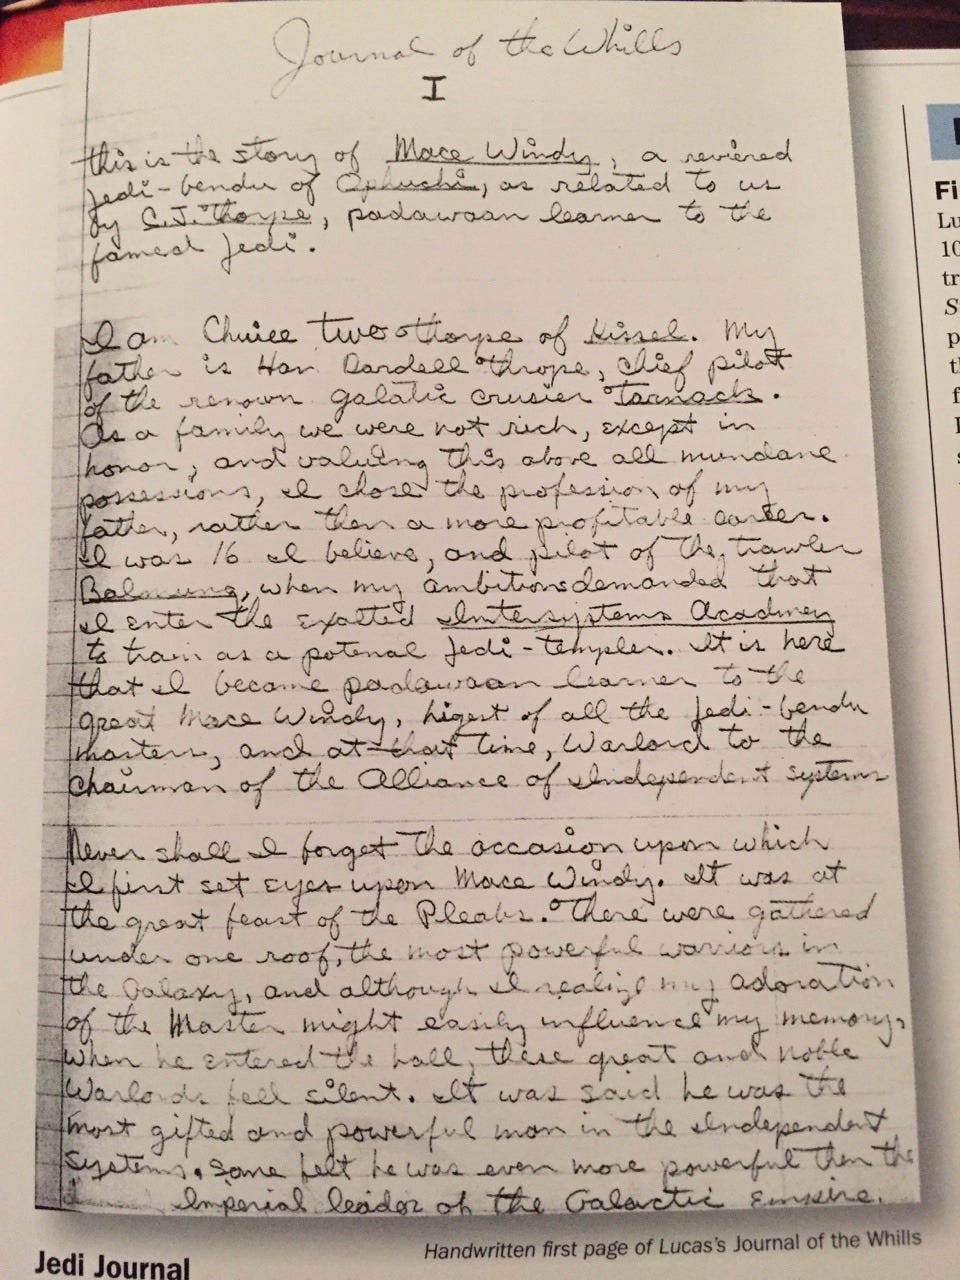 Journal of the Whills
I
this is the story of Mace Windy, a reviered
Jedi-bendu of Opluchi, as related to us
by C.J. thorpe, padawaan learner to the
famed Jedi.
I am Chuiee two thorpe of Kissel. My
father is Han Dardell thrope, chief pilot
of the renown galatic crusier Tarnack.
As a family we were not rich, except in
honor, and valuing this above all mundane
possessions, I chose the profession of my
father, rather then a more profitable career.
I was 16 I believe, and pilot of the trawler
Balmung, when my ambitions demanded that
I enter the exalted Intersystems Acadmey
to train as a potenal Jedi-templer. It is here
that I became padawaan learner to the
great Mace Windy, higest of all the Jedi-bendu
masters, and at that time, Warlord to the
Chairman of the Alliance of Independent systems
Never shall I forget the occasion upon which
I first set eyes upon Mace Windy. It was at
the great feast of the Pleabs. There were gathered
under one roof, the most powerful warriors in
the Galaxy, and although I realize my adoration
of the Master might easily influence my memory,
when he entered the hall, these great and noble
Warlords fell silent. It was said he was the
most gifted and powerful man in the Independent
Systems. Some felt he was even more powerful then the
Imperial leader of the Galactic Empire.
Handwritten first page of Lucas's Journal of the Whills
Jedi Journal
Fi
Lu
10
tr
S
p
th
f